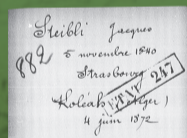 Steibli Jacques
882
5 novembre 1840
Strasbourg
ETAT 247
Koléah (Alger)
4 juin 1872